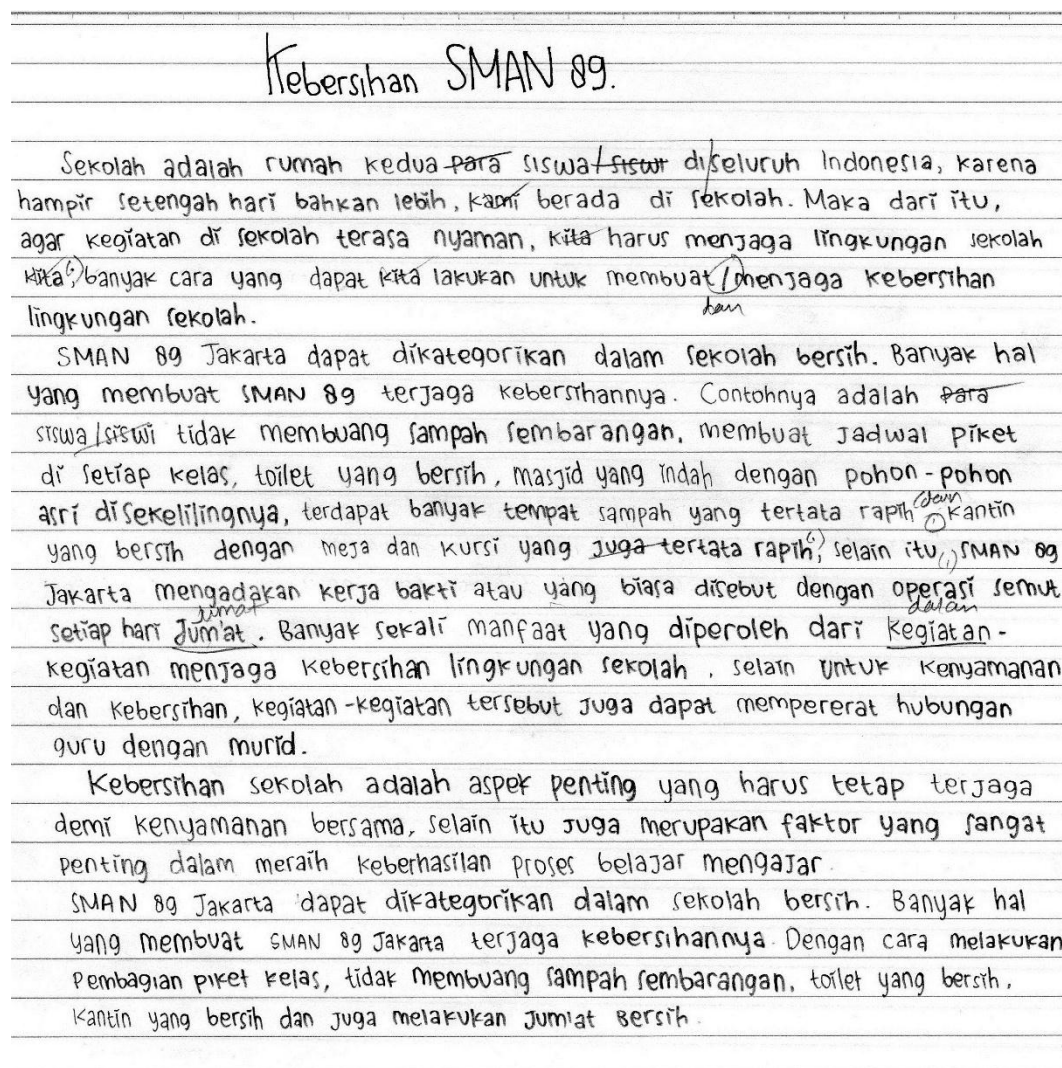 Kebersihan SMAN 89.
Sekolah adalah rumah kedua para siswa/siswi diseluruh Indonesia, karena
hampir setengah hari bahkan lebih, kami berada di sekolah. Maka dari itu,
agar kegiatan di sekolah terasa nyaman, kita harus menjaga lingkungan sekolah
kita, banyak cara yang dapat kita lakukan untuk membuat / menjaga kebersihan
dan
lingkungan sekolah.
SMAN 89 Jakarta dapat dikategorikan dalam sekolah bersih. Banyak hal
yang membuat SMAN 89 terjaga kebersihannya. Contohnya adalah para
siswa/siswi tidak membuang sampah sembarangan, membuat jadwal piket
di setiap kelas, toilet yang bersih, masjid yang indah dengan pohon-pohon
asri disekelilingnya, terdapat banyak tempat sampah yang tertata rapih, dan kantin
yang bersih dengan meja dan kursi yang juga tertata rapih, selain itu, SMAN 89
Jakarta mengadakan kerja bakti atau yang biasa disebut dengan operasi semut
jumat dalam
setiap hari Jum'at. Banyak sekali manfaat yang diperoleh dari kegiatan-
kegiatan menjaga kebersihan lingkungan sekolah, selain untuk kenyamanan
dan kebersihan, kegiatan-kegiatan tersebut juga dapat mempererat hubungan
guru dengan murid.
Kebersihan sekolah adalah aspek penting yang harus tetap terjaga
demi kenyamanan bersama, selain itu juga merupakan faktor yang sangat
penting dalam meraih keberhasilan proses belajar mengajar.
SMAN 89 Jakarta dapat dikategorikan dalam sekolah bersih. Banyak hal
yang membuat SMAN 89 Jakarta terjaga kebersihannya. Dengan cara melakukan
pembagian piket kelas, tidak membuang sampah sembarangan, toilet yang bersih,
kantin yang bersih dan juga melakukan Jum'at Bersih.